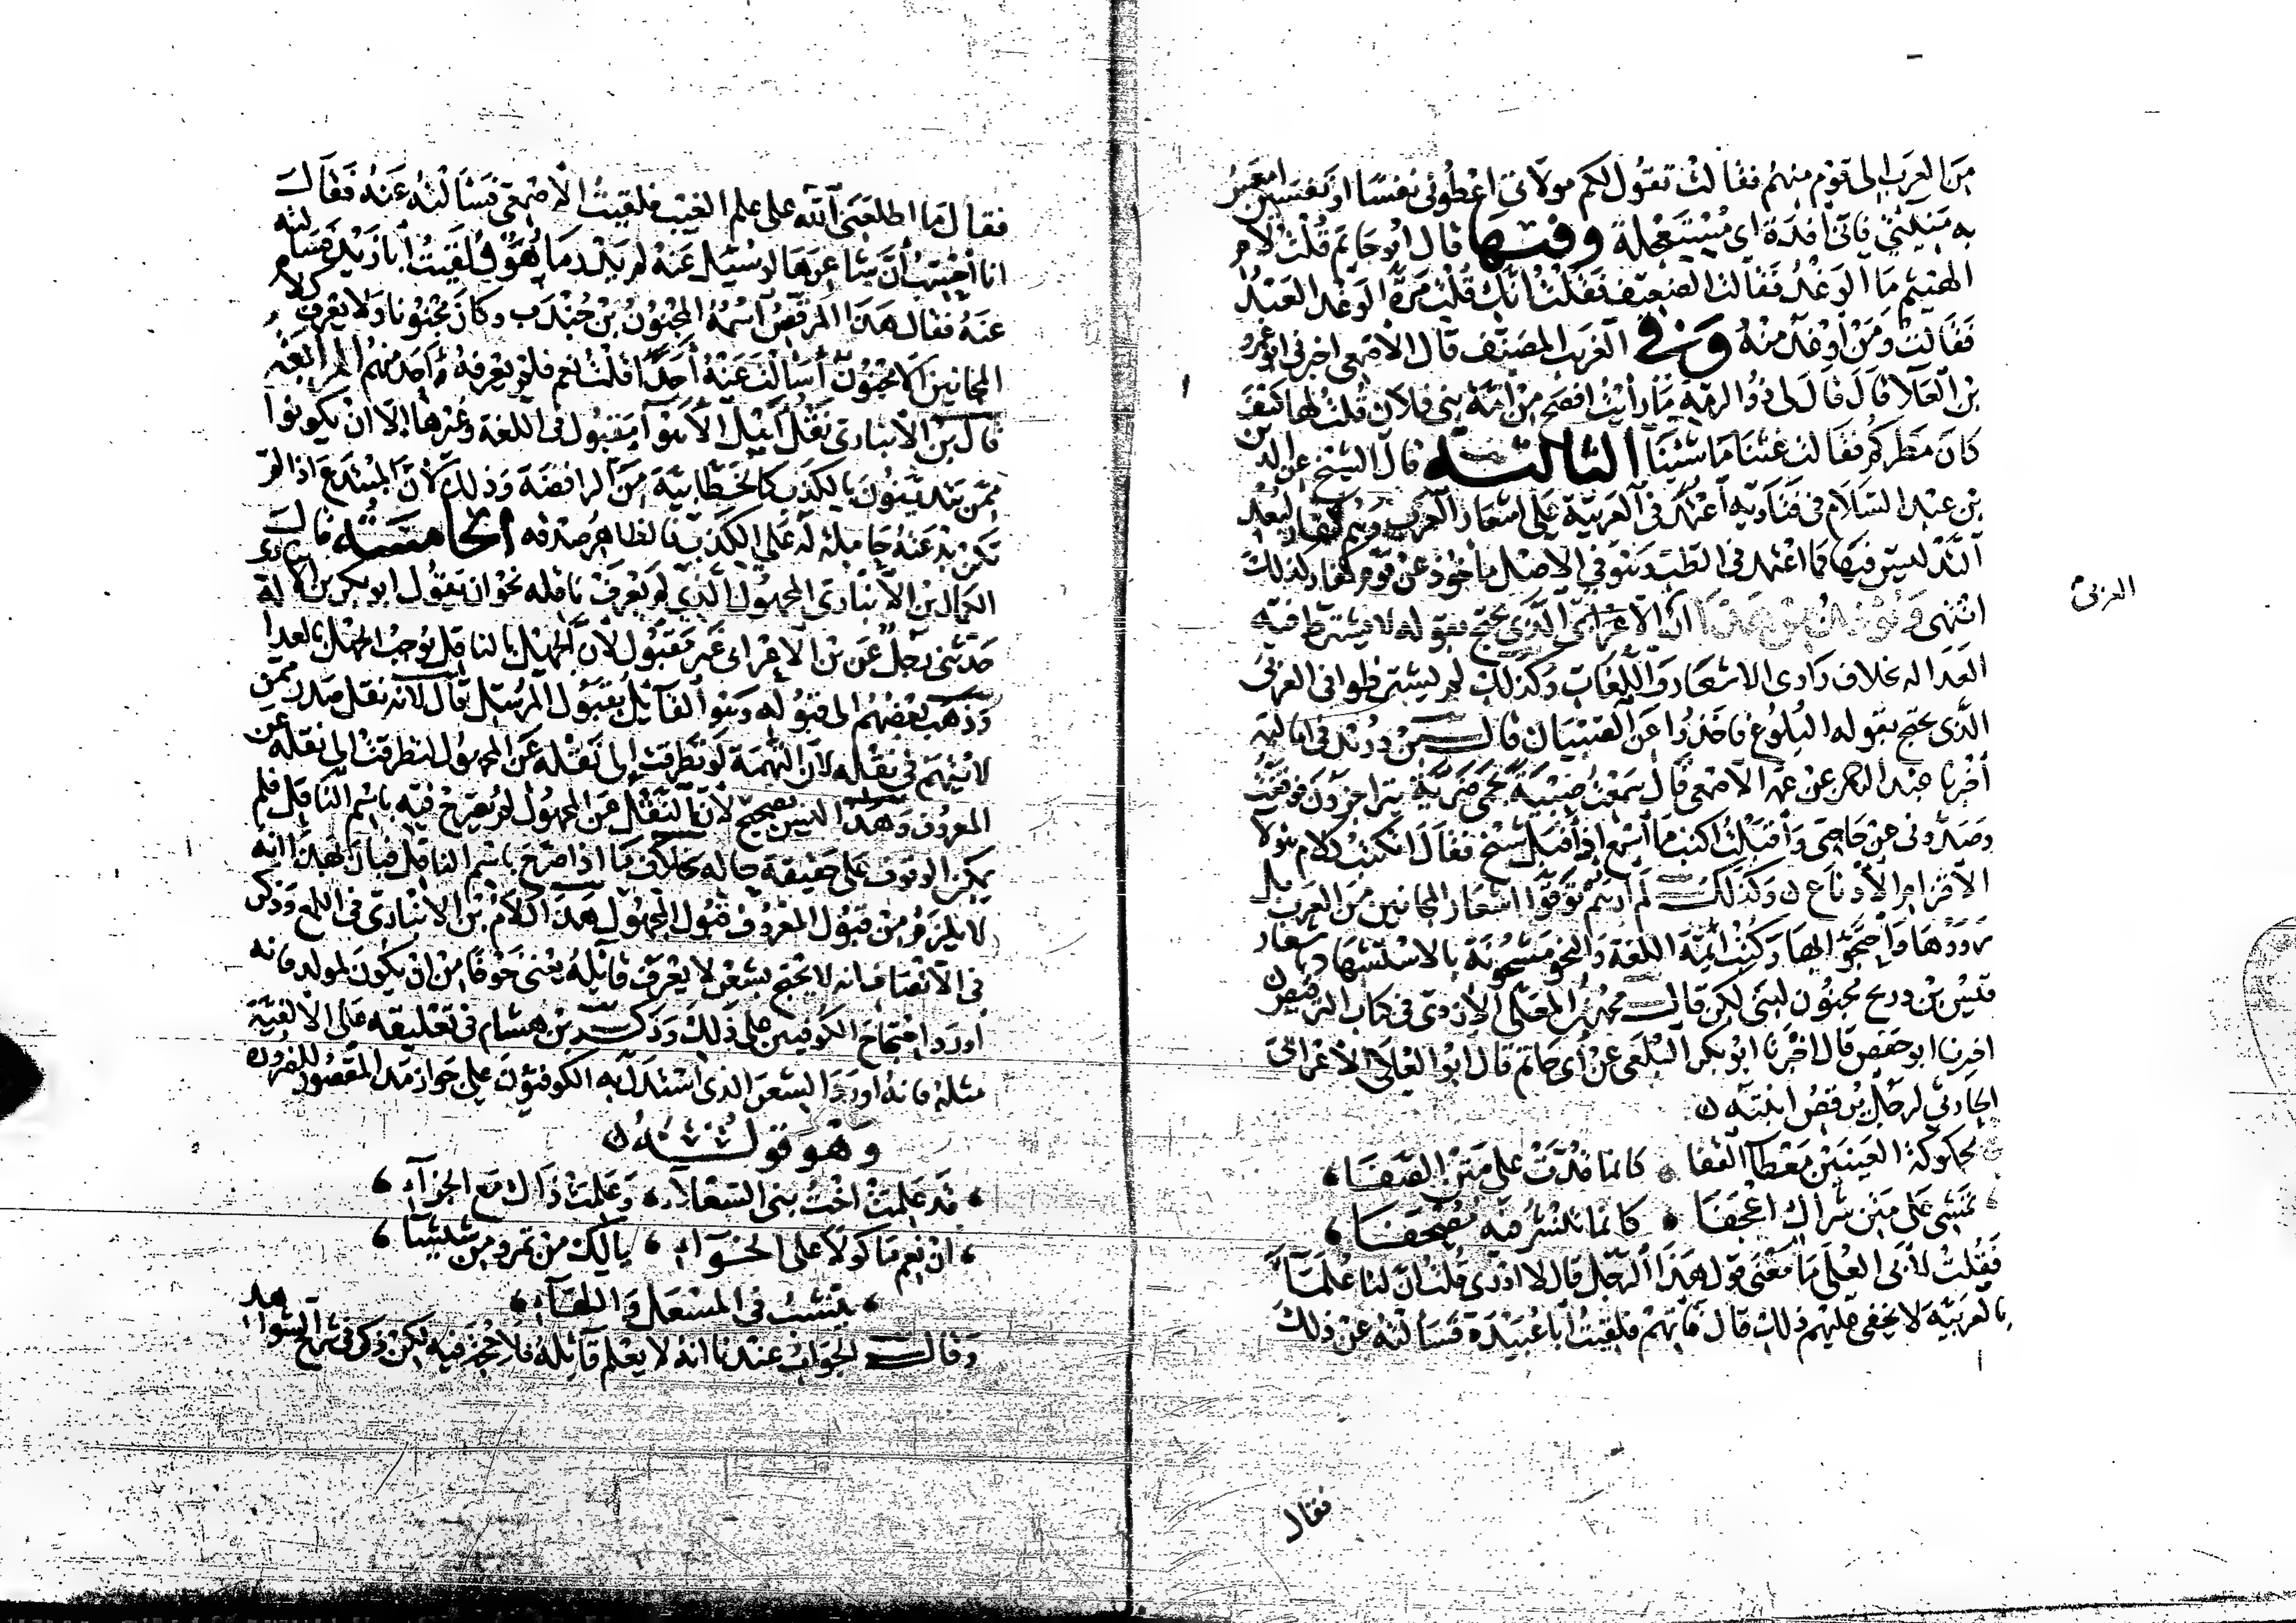 من العرب الى قوم منهم فقالت تقول لكم مولاتي اعطوني نفسا او نفسين امعس
به منيئتي فاني افدة اى مستعجلة وفيها قال ابو حاتم قلت لام
الهيثم ما الوغد فقالت الضعيف فقلت انك قلت مرة الوغد العبد
فقالت ومن اوغد منه وفى الغريب المصنف قال الاصمعى اخبرنى ابو عمرو
بن العلا قال قال لى ذو الرمة ما رأيت افصح من امة بنى فلان قلت لها كيف
كان مطركم فقالت غثنا ما شئنا الثالثة قال الشيخ عز الدين
بن عبد السلام فى فتاويه اعتمد فى العربية على اشعار العرب وهم كفار لبعد
التدليس فيها كما اعتمد فى الطب وهو فى الاصل مأخوذ عن قوم كفار لذلك
انتهى ويؤخذ من هذا ان الاعرابى الذى يحتج بقوله لا يشترط فيه
العربى
العدالة بخلاف راوى الاشعار واللغات وكذلك لم يشترطوا فى العربى
الذى يحتج بقوله البلوغ فاخذوا عن الصبيان قال بن دريد فى اماليه
اخبرنا عبد الرحمن عن عمه الاصمعى قال سمعت صبية بحمى ضرية يتراجزون فوقفت
وصدونى عن حاجتى واقبلت اكتب ما اسمع اذ اقبل شيخ فقال اتكتب كلام هولا
الاقزام الادناع وكذلك لم ارهم توقوا اشعار المجانين من العرب بل
رووها واحتجوا بها وكتب ائمة اللغة والنحو مشحونة بالاستشهاد باشعار
قيس بن ذريح مجنون لبنى لكن قال محمد بن المعلى الازدى فى كتاب الترقيص
اخبرنا ابو حفص قال اخبرنا ابو بكر الثعلبى عن ابى حاتم قال ابو العلا الاعرابى
الحارثى لرجل يرقص ابنته
محكوكة العينين معطا القفا كانما قدت على متن الصفا
تمشى على متن شراك اعجفا كانما تنشر فيه مصحفا
فقلت لابى العلى ما معنى قول هذا الرجل قال لا ادرى قلت ان لنا علما
بالعربية لا يخفى عليهم ذلك قال فأتهم فلقيت ابا عبيدة فسألته عن ذلك
فقال
فقال ما اطلعنى الله على علم الغيب فلقيت الاصمعى فسألته عنه فقال
انا احسب ان شاعرها لو سئل عنه لم يدر ما هو فلقيت ابا زيد فسألته
عنه فقال هذا المرقص اسمه المجنون بن جندب وكان مجنونا ولا يعرف كلام
المجانين الا مجنون أسألت عنه احدا قلت نعم فلم يعرفه احد منهم الرابعة
قال بن الانبارى نقل اهل الاهوا مقبول فى اللغة وغيرها الا ان يكونوا
ممن يتدينون بالكذب كالخطابية من الرافضة وذلك لان المبتدع اذا لم
تكن بدعته حاملة له على الكذب فالظاهر صدقه الخامسة قال
الكمال بن الانبارى المجهول الذى لم يعرف ناقله نحو ان يقول ابو بكر بن الانبارى
حدثنى رجل عن بن الاعرابى غير مقبول لان الجهل بالناقل يوجب الجهل بالعدالة
وذهب بعضهم الى قبوله وهو القائل بقبول المرسل قال لانه نقل صدر ممن
لا يتهم فى نقله لان التهمة لو تطرقت الى نقله عن المجهول لتطرقت الى نقله عن
المعروف وهذا ليس بصحيح لان النقل عن المجهول لم يصرح فيه باسم الناقل فلم
يمكن الوقوف على حقيقة حاله بخلاف ما اذا صرح باسم الناقل فبان بهذا انه
لا يلزم من قبول المعروف قبول المجهول هذا كلام بن الانبارى فى اللمع وذكر
فى الانصاف انه لا يحتج بشعر لا يعرف قائله يعنى خوفا من ان يكون لمولد فانه
اورد احتجاج الكوفيين على ذلك وذكر بن هشام فى تعليقه على الالفية
مثله فانه اورد الشعر الذى استدل به الكوفيون على جواز مد المقصور للضرورة
وهو قوله
قد علمت اخت بنى السعلاء وعلمت ذاك مع الجزآء
ان نعم مأكولا على الخوآء يالك من تمر ومن شيشآء
ينشب فى المسعل واللهآء
وقال الجواب عندنا انه لا يعلم قائله فلا حجة فيه لكن ذكر فى شرح الشواهد